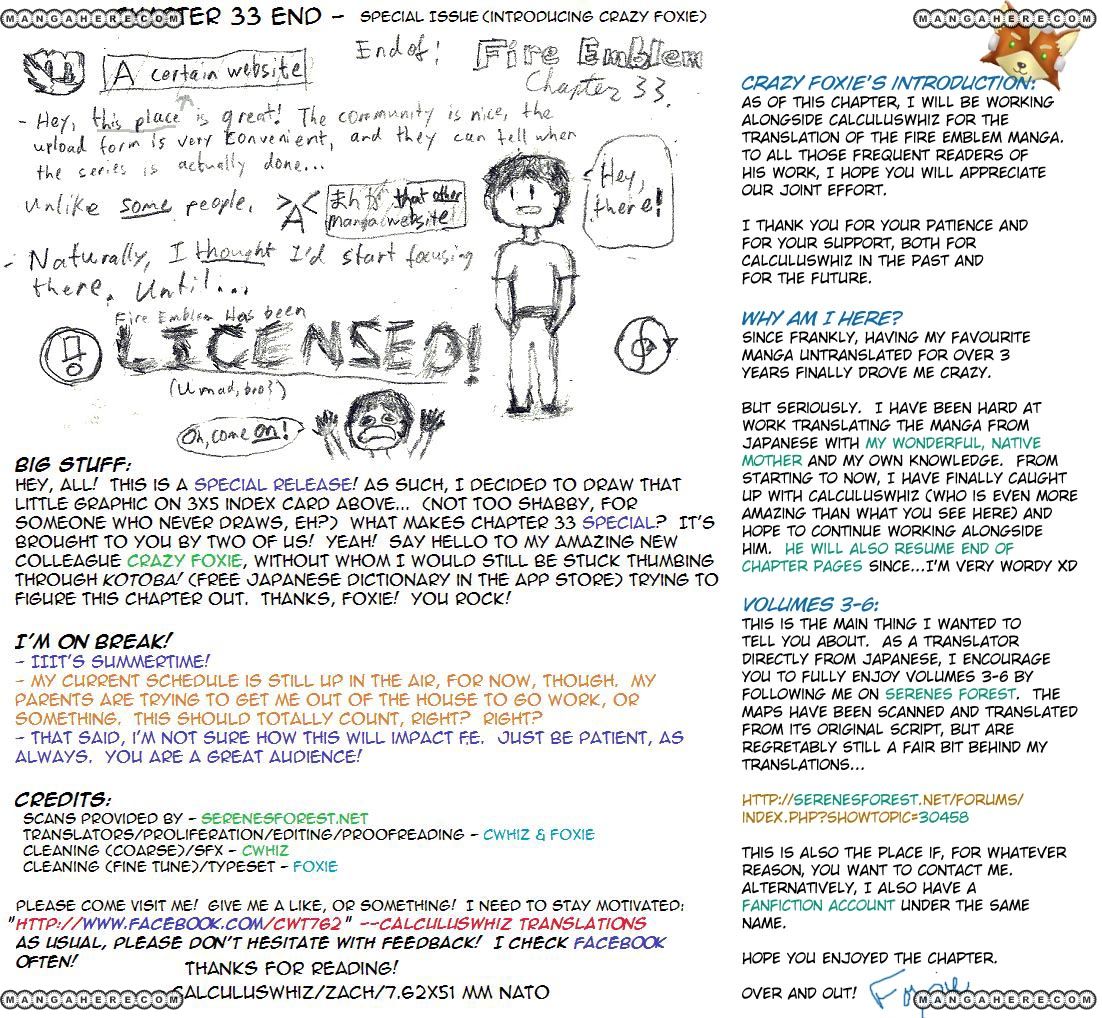 MANGAHERE.COM
CHAPTER 33 END - SPECIAL ISSUE (INTRODUCING CRAZY FOXIE)
MANGAHERE.COM
A certain website
End of! Fire Emblem
Chapter 33.
- Hey, this place is great! The community is nice, the
upload form is very convenient, and they can tell when
the series is actually done...
Unlike some people. >A< まんが that other
manga website!
Hey,
there!
- Naturally, I thought I'd start focusing
there. Until...
Fire Emblem Has been
LICENSED!
(U mad, bro?)
Oh, come on!
BIG STUFF:
HEY, ALL! THIS IS A SPECIAL RELEASE! AS SUCH, I DECIDED TO DRAW THAT
LITTLE GRAPHIC ON 3X5 INDEX CARD ABOVE... (NOT TOO SHABBY, FOR
SOMEONE WHO NEVER DRAWS, EH?) WHAT MAKES CHAPTER 33 SPECIAL? IT'S
BROUGHT TO YOU BY TWO OF US! YEAH! SAY HELLO TO MY AMAZING NEW
COLLEAGUE CRAZY FOXIE, WITHOUT WHOM I WOULD STILL BE STUCK THUMBING
THROUGH KOTOBA! (FREE JAPANESE DICTIONARY IN THE APP STORE) TRYING TO
FIGURE THIS CHAPTER OUT. THANKS, FOXIE! YOU ROCK!
I'M ON BREAK!
- IIIT'S SUMMERTIME!
- MY CURRENT SCHEDULE IS STILL UP IN THE AIR, FOR NOW, THOUGH. MY
PARENTS ARE TRYING TO GET ME OUT OF THE HOUSE TO GO WORK, OR
SOMETHING. THIS SHOULD TOTALLY COUNT, RIGHT? RIGHT?
- THAT SAID, I'M NOT SURE HOW THIS WILL IMPACT F.E. JUST BE PATIENT, AS
ALWAYS. YOU ARE A GREAT AUDIENCE!
CREDITS:
SCANS PROVIDED BY - SERENESFOREST.NET
TRANSLATORS/PROLIFERATION/EDITING/PROOFREADING - CWHIZ & FOXIE
CLEANING (COARSE)/SFX - CWHIZ
CLEANING (FINE TUNE)/TYPESET - FOXIE
PLEASE COME VISIT ME! GIVE ME A LIKE, OR SOMETHING! I NEED TO STAY MOTIVATED:
"HTTP://WWW.FACEBOOK.COM/CWT762" --CALCULUSWHIZ TRANSLATIONS
AS USUAL, PLEASE DON'T HESITATE WITH FEEDBACK! I CHECK FACEBOOK
OFTEN!
THANKS FOR READING!
CALCULUSWHIZ/ZACH/7.62X51 MM NATO
MANGAHERE.COM
CRAZY FOXIE'S INTRODUCTION:
AS OF THIS CHAPTER, I WILL BE WORKING
ALONGSIDE CALCULUSWHIZ FOR THE
TRANSLATION OF THE FIRE EMBLEM MANGA.
TO ALL THOSE FREQUENT READERS OF
HIS WORK, I HOPE YOU WILL APPRECIATE
OUR JOINT EFFORT.
I THANK YOU FOR YOUR PATIENCE AND
FOR YOUR SUPPORT, BOTH FOR
CALCULUSWHIZ IN THE PAST AND
FOR THE FUTURE.
WHY AM I HERE?
SINCE FRANKLY, HAVING MY FAVOURITE
MANGA UNTRANSLATED FOR OVER 3
YEARS FINALLY DROVE ME CRAZY.
BUT SERIOUSLY. I HAVE BEEN HARD AT
WORK TRANSLATING THE MANGA FROM
JAPANESE WITH MY WONDERFUL, NATIVE
MOTHER AND MY OWN KNOWLEDGE. FROM
STARTING TO NOW, I HAVE FINALLY CAUGHT
UP WITH CALCULUSWHIZ (WHO IS EVEN MORE
AMAZING THAN WHAT YOU SEE HERE) AND
HOPE TO CONTINUE WORKING ALONGSIDE
HIM. HE WILL ALSO RESUME END OF
CHAPTER PAGES SINCE...I'M VERY WORDY XD
VOLUMES 3-6:
THIS IS THE MAIN THING I WANTED TO
TELL YOU ABOUT. AS A TRANSLATOR
DIRECTLY FROM JAPANESE, I ENCOURAGE
YOU TO FULLY ENJOY VOLUMES 3-6 BY
FOLLOWING ME ON SERENES FOREST. THE
MAPS HAVE BEEN SCANNED AND TRANSLATED
FROM ITS ORIGINAL SCRIPT, BUT ARE
REGRETABLY STILL A FAIR BIT BEHIND MY
TRANSLATIONS...
HTTP://SERENESFOREST.NET/FORUMS/
INDEX.PHP?SHOWTOPIC=30458
THIS IS ALSO THE PLACE IF, FOR WHATEVER
REASON, YOU WANT TO CONTACT ME.
ALTERNATIVELY, I ALSO HAVE A
FANFICTION ACCOUNT UNDER THE SAME
NAME.
HOPE YOU ENJOYED THE CHAPTER.
OVER AND OUT! Foxie
MANGAHERE.COM